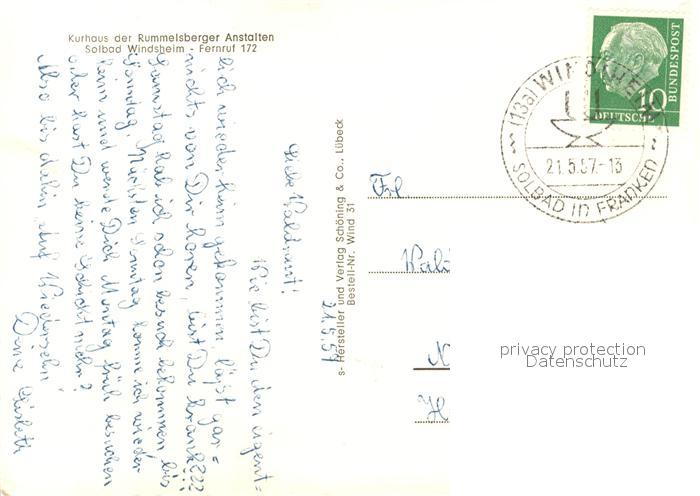 Kurhaus der Rummelsberger Anstalten
Solbad Windsheim - Fernruf 172
21.5.57
Liebe Waldraut!
Wie bist Du denn eigent=
lich wieder heim gekommen, läßt gar=
nichts von Dir hören, bist Du krank???
Samstag hab ich schon besuch bekommen bis
Sonntag. Nächsten Sonntag komme ich wieder
heim und werde Dich Montag früh besuchen
oder hast Du keine Schicht mehr?
Also bis dahin, Auf Wiedersehn!
Deine Lisbeth
s- Hersteller und Verlag Schöning & Co., Lübeck
Bestell-Nr. Wind 31
Frl
N
H
DEUTSCHE
BUNDESPOST
10
(13a) WINDSHEIM
21.5.57.-13
SOLBAD IN FRANKEN
privacy protection
Datenschutz